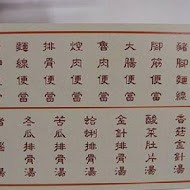 豬腳麵線
腳筋便當
大腸便當
魯肉便當
焢肉便當
排骨便當
麵線便當
香菇金針湯
酸菜肚片湯
金針排骨湯
蛤蜊排骨湯
苦瓜排骨湯
冬瓜排骨湯
湯